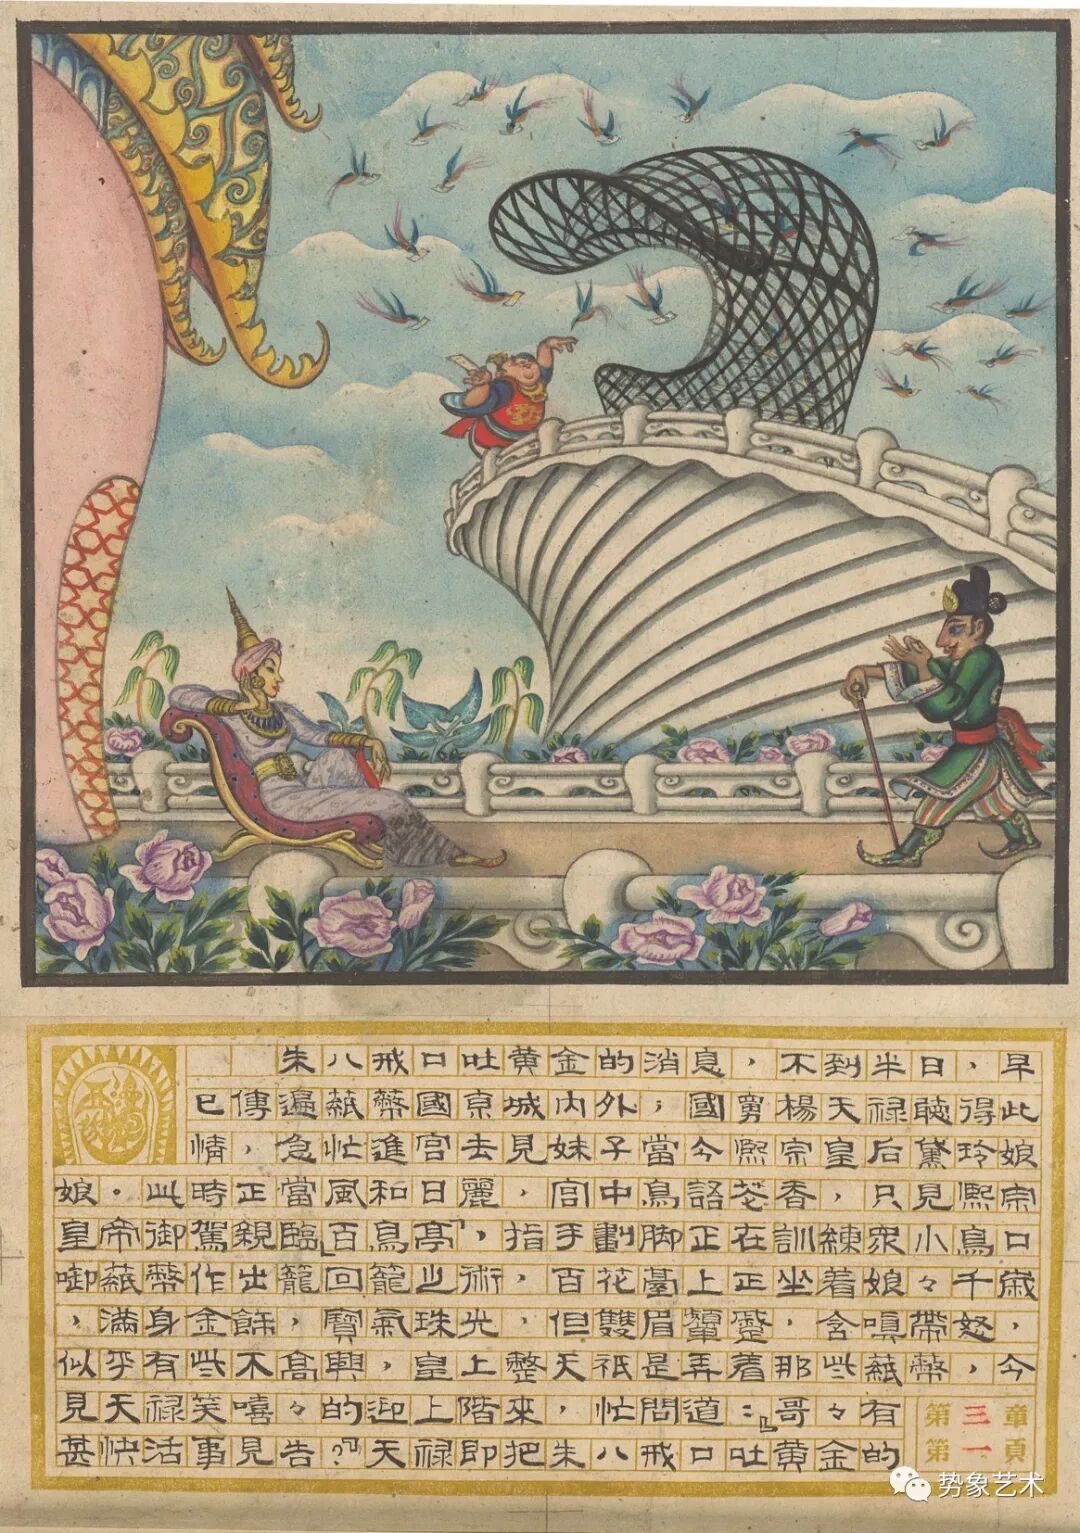 朱八戒口吐黃金的消息，不到半日，早
已傳遍紙幣國京城內外；國舅楊天祿聽得此
情，急忙進宮去見妹子當今熙宗皇后黛玲娘
娘。此時正當風和日麗，宮中鳥語花香，只見熙宗
皇帝御駕親臨「百鳥亭」，指手劃脚正在訓練眾小鳥口
啣紙幣作出籠回籠之術，百花臺上正坐着娘々千歲
，滿身金飾，寶氣珠光，但雙眉顰蹙，含嗔帶怒，
似乎有些不高興，皇上整天祇是弄着那些紙幣，今
見天祿笑嘻々的迎上階來，忙問道：「哥々有
甚快活事見告？」天祿即把朱八戒口吐黃金的
第三章
第一頁
势象艺术